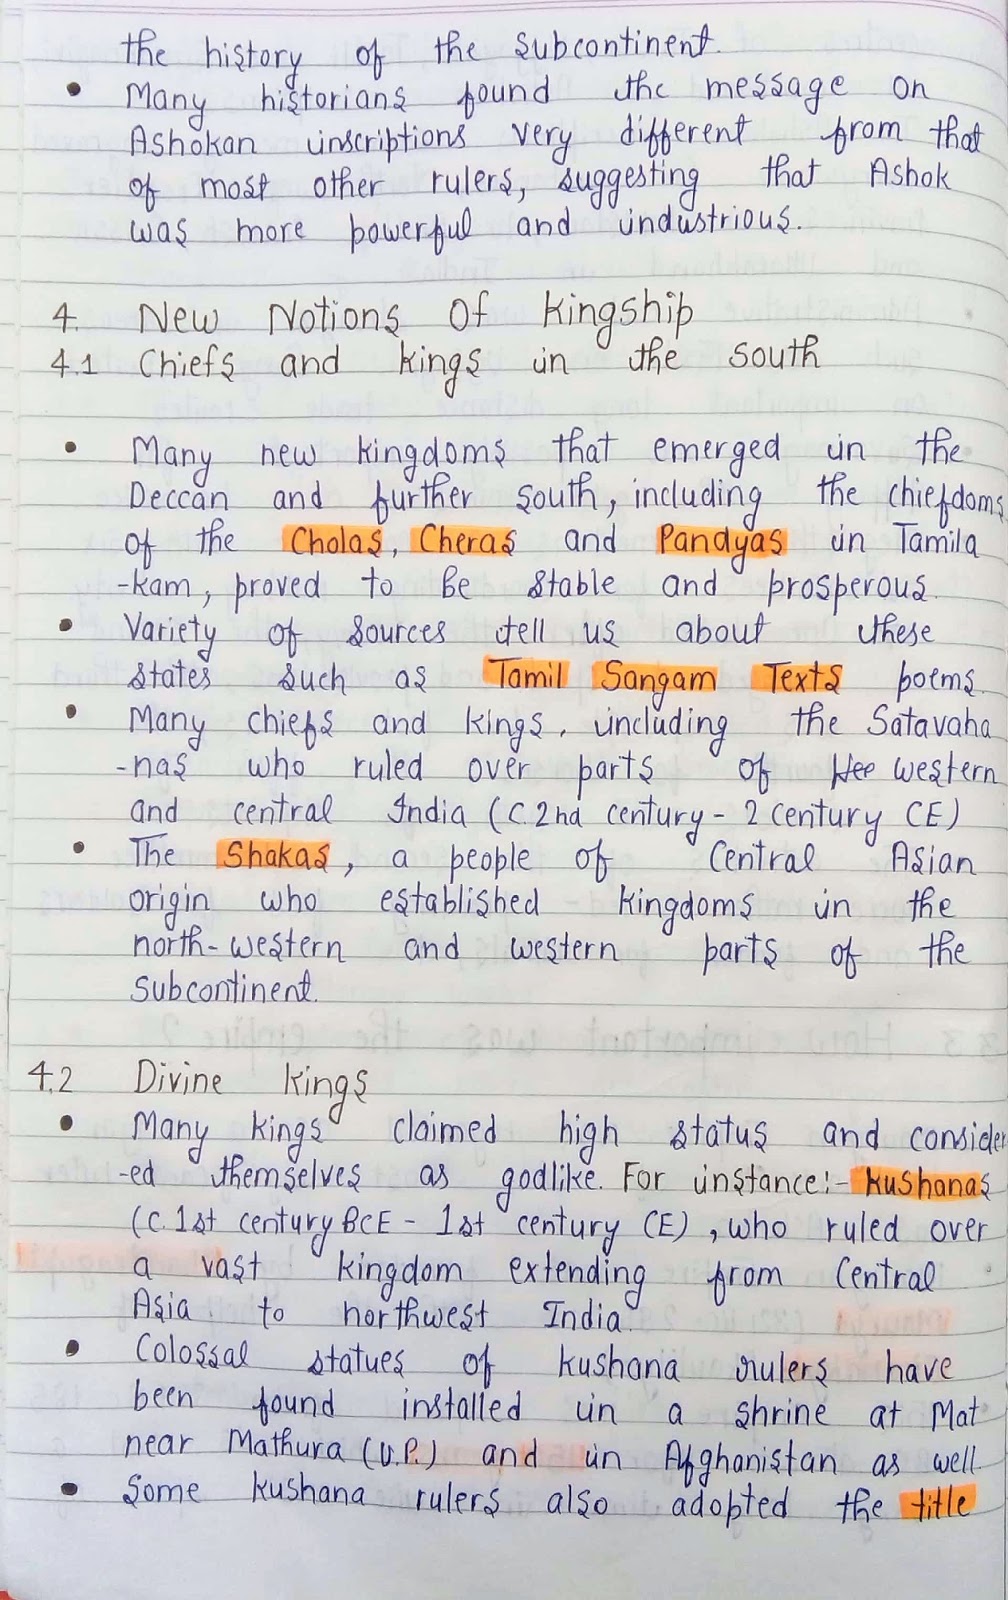 the history of the subcontinent.
• Many historians found the message on
Ashokan inscriptions very different from that
of most other rulers, suggesting that Ashok
was more powerful and industrious.
4. New Notions Of Kingship
4.1 Chiefs and kings in the south
• Many new kingdoms that emerged in the
Deccan and further south, including the chiefdoms
of the Cholas, Cheras and Pandyas in Tamila
-kam, proved to be stable and prosperous.
• Variety of sources tell us about these
states such as Tamil Sangam Texts poems.
• Many chiefs and kings, including the Satavaha
-nas who ruled over parts of western
and central India (C.2nd century - 2 century CE)
• The Shakas, a people of Central Asian
origin who established kingdoms in the
north-western and western parts of the
subcontinent.
4.2 Divine kings
• Many kings claimed high status and consider
-ed themselves as godlike. For instance:- kushanas
(C.1st century BCE - 1st century CE), who ruled over
a vast kingdom extending from Central
Asia to northwest India.
• Colossal statues of kushana rulers have
been found installed in a shrine at Mat
near Mathura (U.P.) and in Afghanistan as well.
• Some kushana rulers also adopted the title